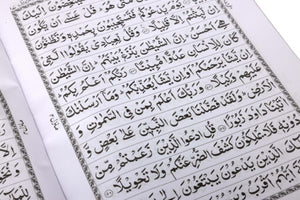 هُوَ ۖ قُلْ عَسٰٓى اَنْ يَّكُوْنَ
قَرِيْبًا يَوْمَ يَدْعُوْكُمْ فَتَسْتَجِيْبُوْنَ بِحَمْدِهٖ وَتَظُنُّوْنَ
اِنْ لَّبِثْتُمْ اِلَّا قَلِيْلًا وَقُلْ لِّعِبَادِيْ يَقُوْلُوا الَّتِيْ
هِيَ اَحْسَنُ ۚ اِنَّ الشَّيْطٰنَ يَنْزَغُ بَيْنَهُمْ ۚ اِنَّ الشَّيْطٰنَ
كَانَ لِلْاِنْسَانِ عَدُوًّا مُّبِيْنًا رَبُّكُمْ اَعْلَمُ بِكُمْ
اِنْ يَّشَاْ يَرْحَمْكُمْ اَوْ اِنْ يَّشَاْ يُعَذِّبْكُمْ ۚ وَمَآ اَرْسَلْنٰكَ
عَلَيْهِمْ وَكِيْلًا وَرَبُّكَ اَعْلَمُ بِمَنْ فِي السَّمٰوٰتِ
وَالْاَرْضِ ۚ وَلَقَدْ فَضَّلْنَا بَعْضَ النَّبِيّٖنَ عَلٰى بَعْضٍ
وَّاٰتَيْنَا دَاوٗدَ زَبُوْرًا قُلِ ادْعُوا الَّذِيْنَ زَعَمْتُمْ مِّنْ
دُوْنِهٖ فَلَا يَمْلِكُوْنَ كَشْفَ الضُّرِّ عَنْكُمْ وَلَا تَحْوِيْلًا
اُولٰٓئِكَ الَّذِيْنَ يَدْعُوْنَ يَبْتَغُوْنَ اِلٰى
اَيُّهُمْ اَقْرَبُ